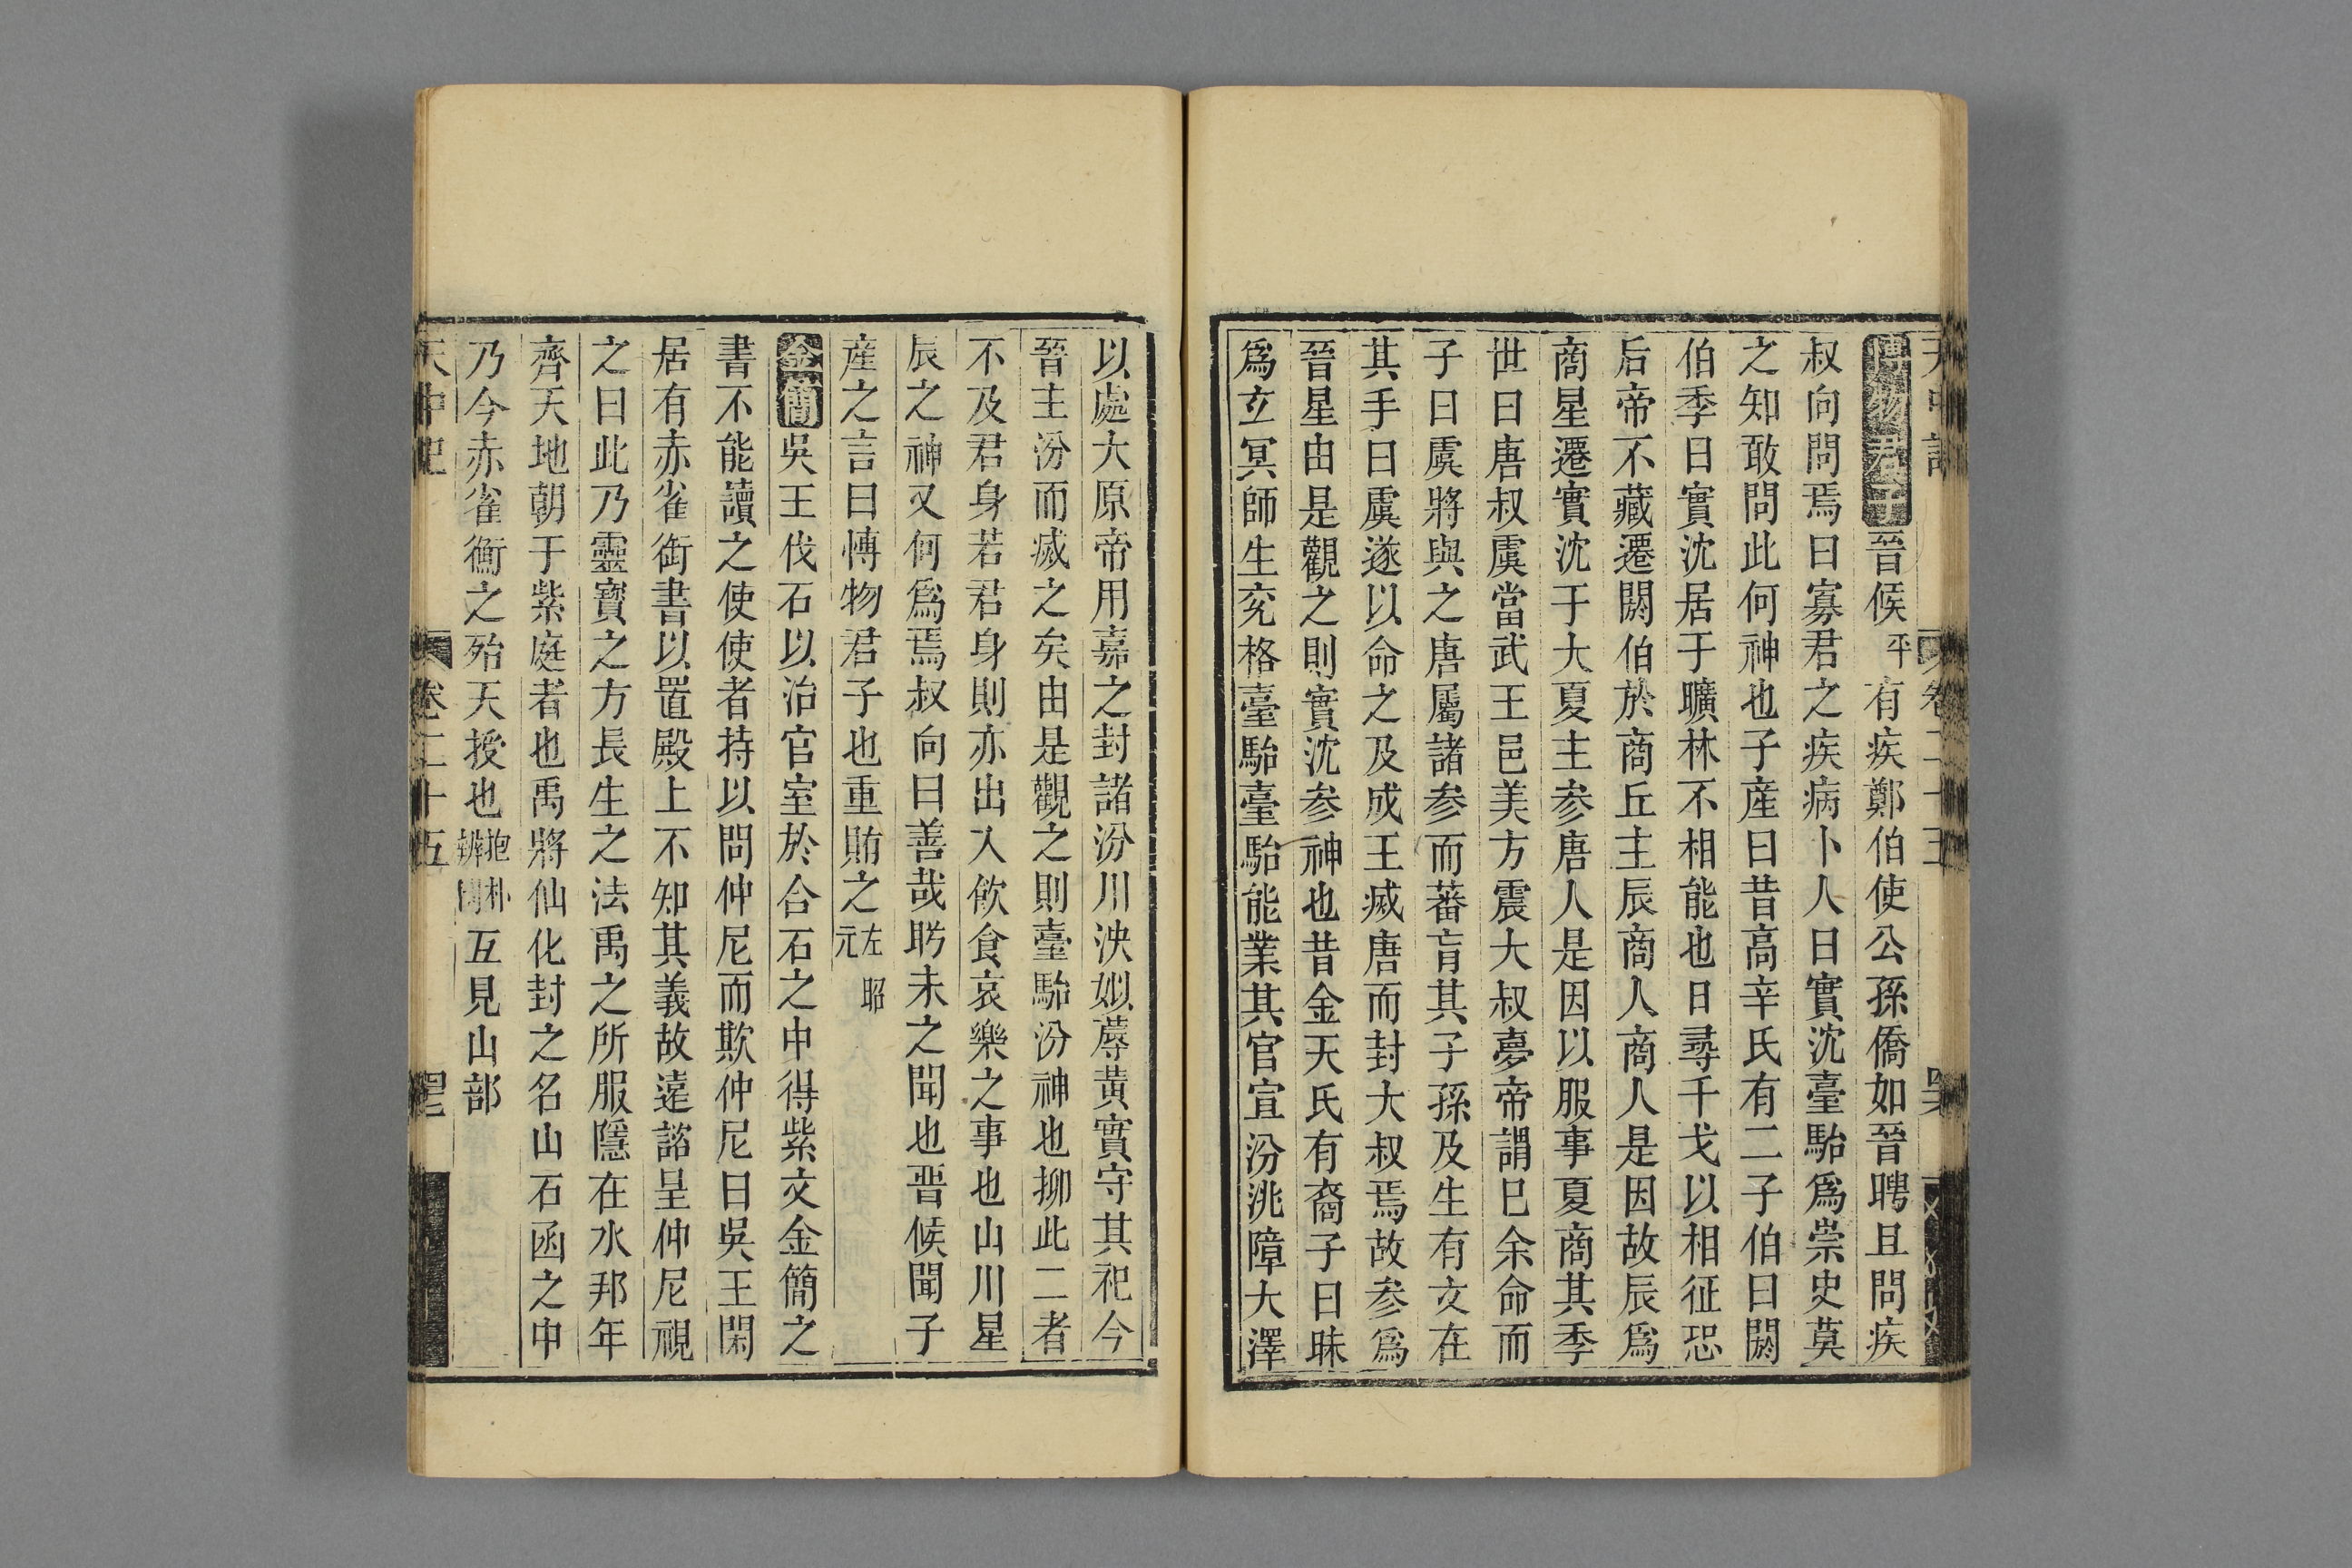 博物君子晉候平有疾鄭伯使公孫僑如晉聘且問疾
叔向問焉曰寡君之疾病卜人曰實沈臺駘爲崇史莫
之知敢問此何神也子産曰昔高辛氏有二子伯曰閼
伯季曰實沈居于曠林不相能也日尋千戈以相征㤙
后帝不藏遷閼伯於商丘主辰商人商人是因故辰爲
商星遷實沈于大夏主参唐人是因以服事夏商其季
世曰唐叔虞當武王邑美方震大叔夢帝謂巳余命而
子曰虞將與之唐屬諸参而蕃育其子孫及生有文在
其手曰虞遂以命之及成王㓕唐而封大叔焉故参爲
晉星由是觀之則實沈参神也昔金天氏有裔子曰昧
爲玄冥師生𠃔格臺駘臺駘能業其官宣汾洮障大澤
以處大原帝用嘉之封諸汾川泱姒蓐黄實守其祀今
晉主汾而㓕之矣由是觀之則臺駘汾神也抑此二者
不及君身若君身則亦出入飲食哀樂之事也山川星
辰之神又何爲焉叔向曰善哉肹未之聞也晋候聞子
産之言曰博物君子也重賄之左昭元
金簡吳王伐石以治宫室於合石之中得紫文金簡之
書不能讀之使使者持以問仲尼而欺仲尼曰吳王閑
居有赤雀銜書以置殿上不知其義故遠諮呈仲尼視
之曰此乃靈寶之方長生之法禹之所服隱在水邦年
齊天地朝于紫庭者也禹將仙化封之名山石函之中
乃今赤雀銜之殆天授也抱朴辨問互見山部
天中記 卷二十五